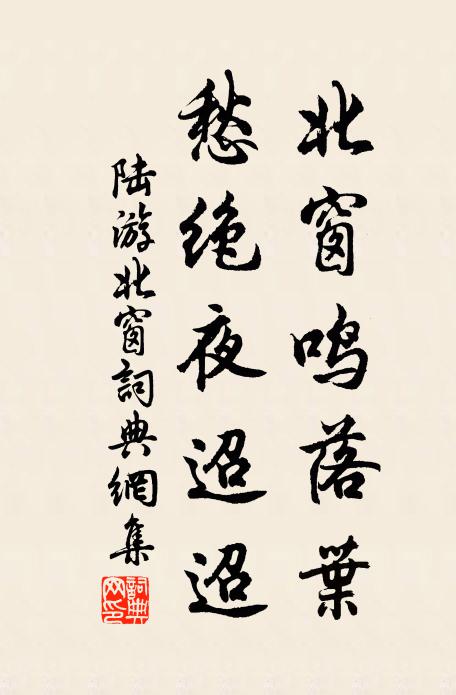 北窗鳴落葉
愁绝夜迢迢
陆游北窗詞典網集
詞典網印